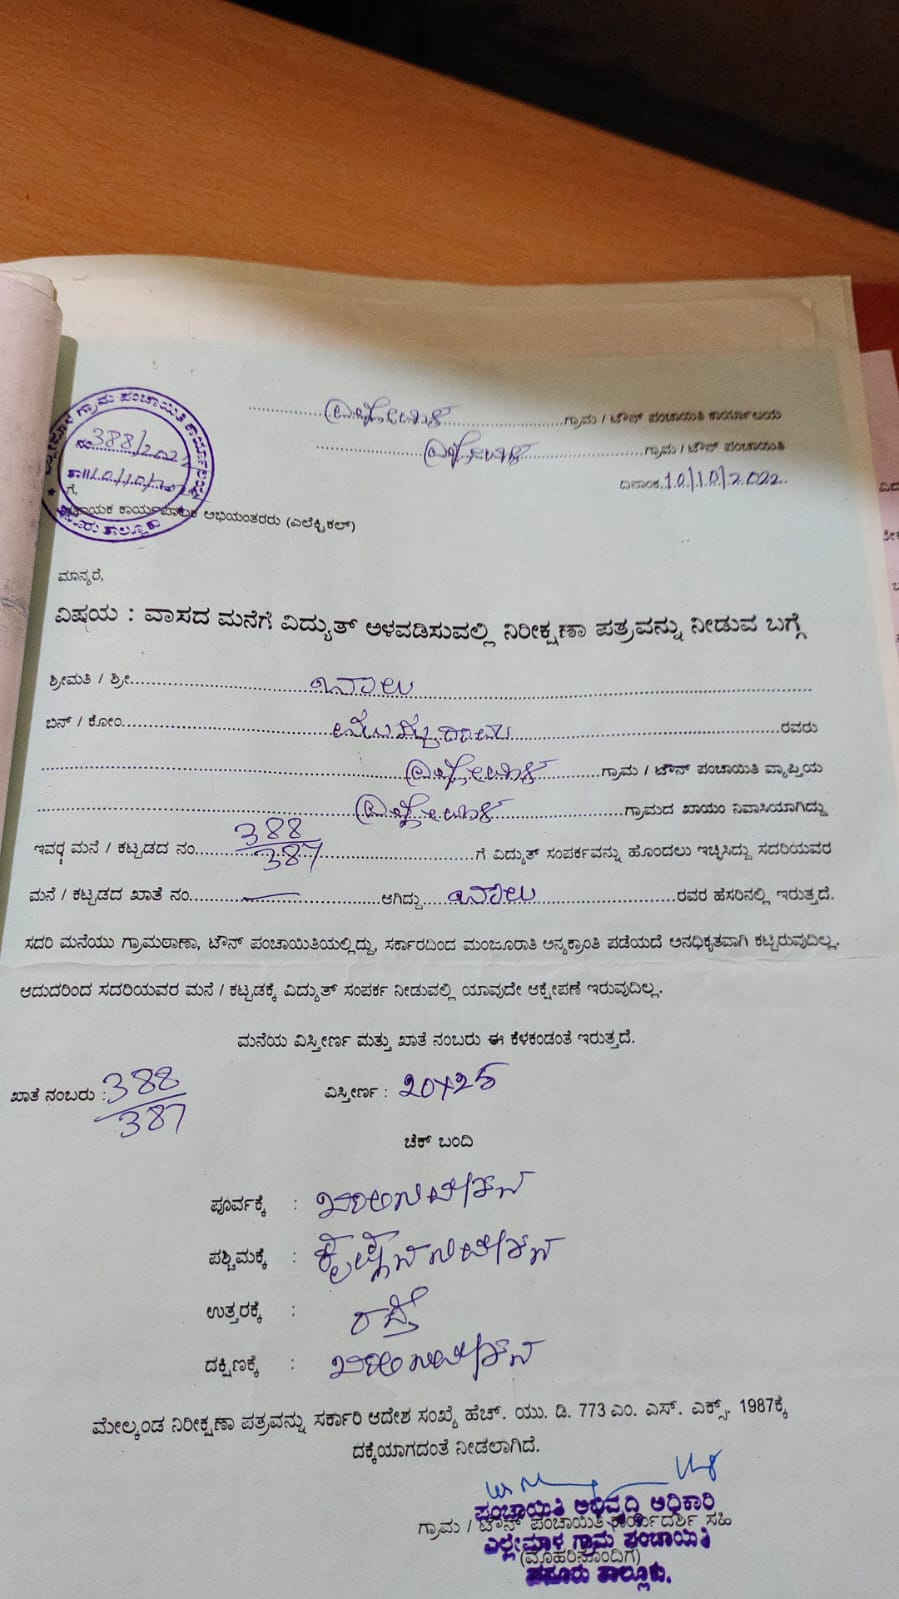 ಗ್ರಾಮ ಪಂಚಾಯಿತಿ ಕಾರ್ಯಾಲಯ
ನಂ 388/202
.......... ಗ್ರಾಮ / ಟೌನ್ ಪಂಚಾಯಿತಿ ಕಾರ್ಯಾಲಯ
.......... ಗ್ರಾಮ / ಟೌನ್ ಪಂಚಾಯಿತಿ
ದಿನಾಂಕ 10/10/2022
ಗೆ,
ಸಹಾಯಕ ಕಾರ್ಯಪಾಲಕ ಅಭಿಯಂತರರು (ಎಲೆಕ್ಟ್ರಿಕಲ್)
ಮಾನ್ಯರೆ,
ವಿಷಯ : ವಾಸದ ಮನೆಗೆ ವಿದ್ಯುತ್ ಅಳವಡಿಸುವಲ್ಲಿ ನಿರೀಕ್ಷಣಾ ಪತ್ರವನ್ನು ನೀಡುವ ಬಗ್ಗೆ
ಶ್ರೀಮತಿ / ಶ್ರೀ..........
ಬಿನ್ / ಕೋಂ.......... ರವರು
.......... ಗ್ರಾಮ / ಟೌನ್ ಪಂಚಾಯಿತಿ ವ್ಯಾಪ್ತಿಯ
.......... ಗ್ರಾಮದ ಖಾಯಂ ನಿವಾಸಿಯಾಗಿದ್ದು
ಇವರ ಮನೆ / ಕಟ್ಟಡದ ನಂ. 388/387 ಗೆ ವಿದ್ಯುತ್ ಸಂಪರ್ಕವನ್ನು ಹೊಂದಲು ಇಚ್ಛಿಸಿದ್ದು ಸದರಿಯವರ
ಮನೆ / ಕಟ್ಟಡದ ಖಾತೆ ನಂ. — ಆಗಿದ್ದು .......... ರವರ ಹೆಸರಿನಲ್ಲಿ ಇರುತ್ತದೆ.
ಸದರಿ ಮನೆಯು ಗ್ರಾಮಠಾಣಾ, ಟೌನ್ ಪಂಚಾಯಿತಿಯಲ್ಲಿದ್ದು, ಸರ್ಕಾರದಿಂದ ಮಂಜೂರಾತಿ ಅನ್ಯಕ್ರಾಂತಿ ಪಡೆಯದೆ ಅನಧಿಕೃತವಾಗಿ ಕಟ್ಟಿರುವುದಿಲ್ಲ.
ಆದುದರಿಂದ ಸದರಿಯವರ ಮನೆ / ಕಟ್ಟಡಕ್ಕೆ ವಿದ್ಯುತ್ ಸಂಪರ್ಕ ನೀಡುವಲ್ಲಿ ಯಾವುದೇ ಆಕ್ಷೇಪಣೆ ಇರುವುದಿಲ್ಲ.
ಮನೆಯ ವಿಸ್ತೀರ್ಣ ಮತ್ತು ಖಾತೆ ನಂಬರು ಈ ಕೆಳಕಂಡಂತೆ ಇರುತ್ತದೆ.
ಖಾತೆ ನಂಬರು : 388/387 ವಿಸ್ತೀರ್ಣ : 20x25
ಚೆಕ್ ಬಂದಿ
ಪೂರ್ವಕ್ಕೆ :
ಪಶ್ಚಿಮಕ್ಕೆ :
ಉತ್ತರಕ್ಕೆ : ರಸ್ತೆ
ದಕ್ಷಿಣಕ್ಕೆ :
ಮೇಲ್ಕಂಡ ನಿರೀಕ್ಷಣಾ ಪತ್ರವನ್ನು ಸರ್ಕಾರಿ ಆದೇಶ ಸಂಖ್ಯೆ ಹೆಚ್. ಯು. ಡಿ. 773 ಎಂ. ಎಸ್. ಎಕ್ಸ್. 1987ಕ್ಕೆ
ದಕ್ಕೆಯಾಗದಂತೆ ನೀಡಲಾಗಿದೆ.
ಪಂಚಾಯಿತಿ ಅಭಿವೃದ್ಧಿ ಅಧಿಕಾರಿ
ಗ್ರಾಮ / ಟೌನ್ ಪಂಚಾಯಿತಿ ಕಾರ್ಯದರ್ಶಿ ಸಹಿ
ಎಲ್ಲೇಮಾಳ ಗ್ರಾಮ ಪಂಚಾಯಿತಿ
(ಮೊಹರಿನೊಂದಿಗೆ)
ಹನೂರು ತಾಲ್ಲೂಕು.